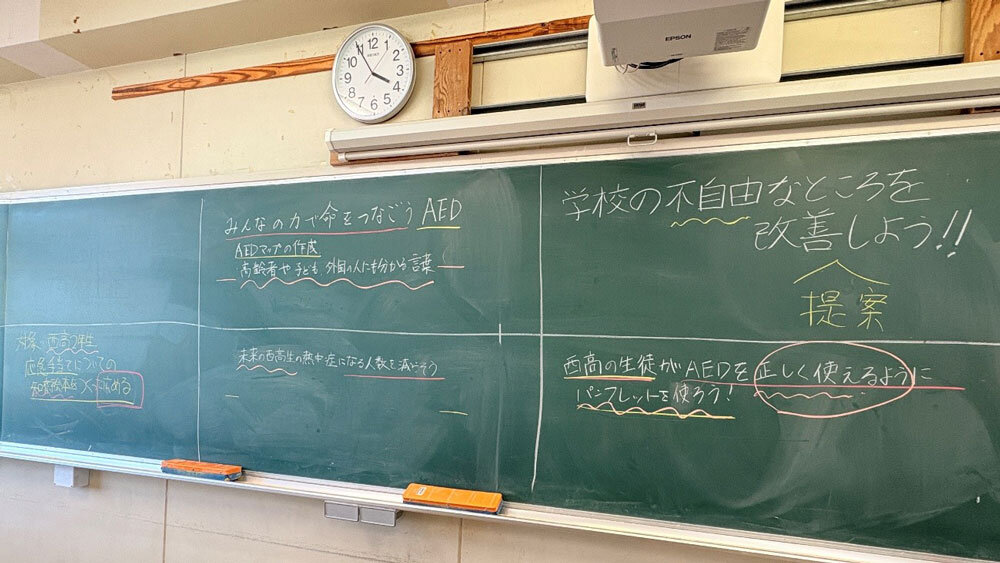 12
1
2
3
4
5
6
7
8
9
10
11
SEIKO
EPSON
みんなの力で命をつなごう AED
AEDマップの作成
高齢者や子ども、外国の人にも分かる言葉
学校の不自由なところを
改善しよう!!
提案
対象 西高2年生
応急手当についての
める
未来の西高生の熱中症になる人数を減らそう
西高の生徒がAEDを正しく使えるように
パンフレットを使ろう!